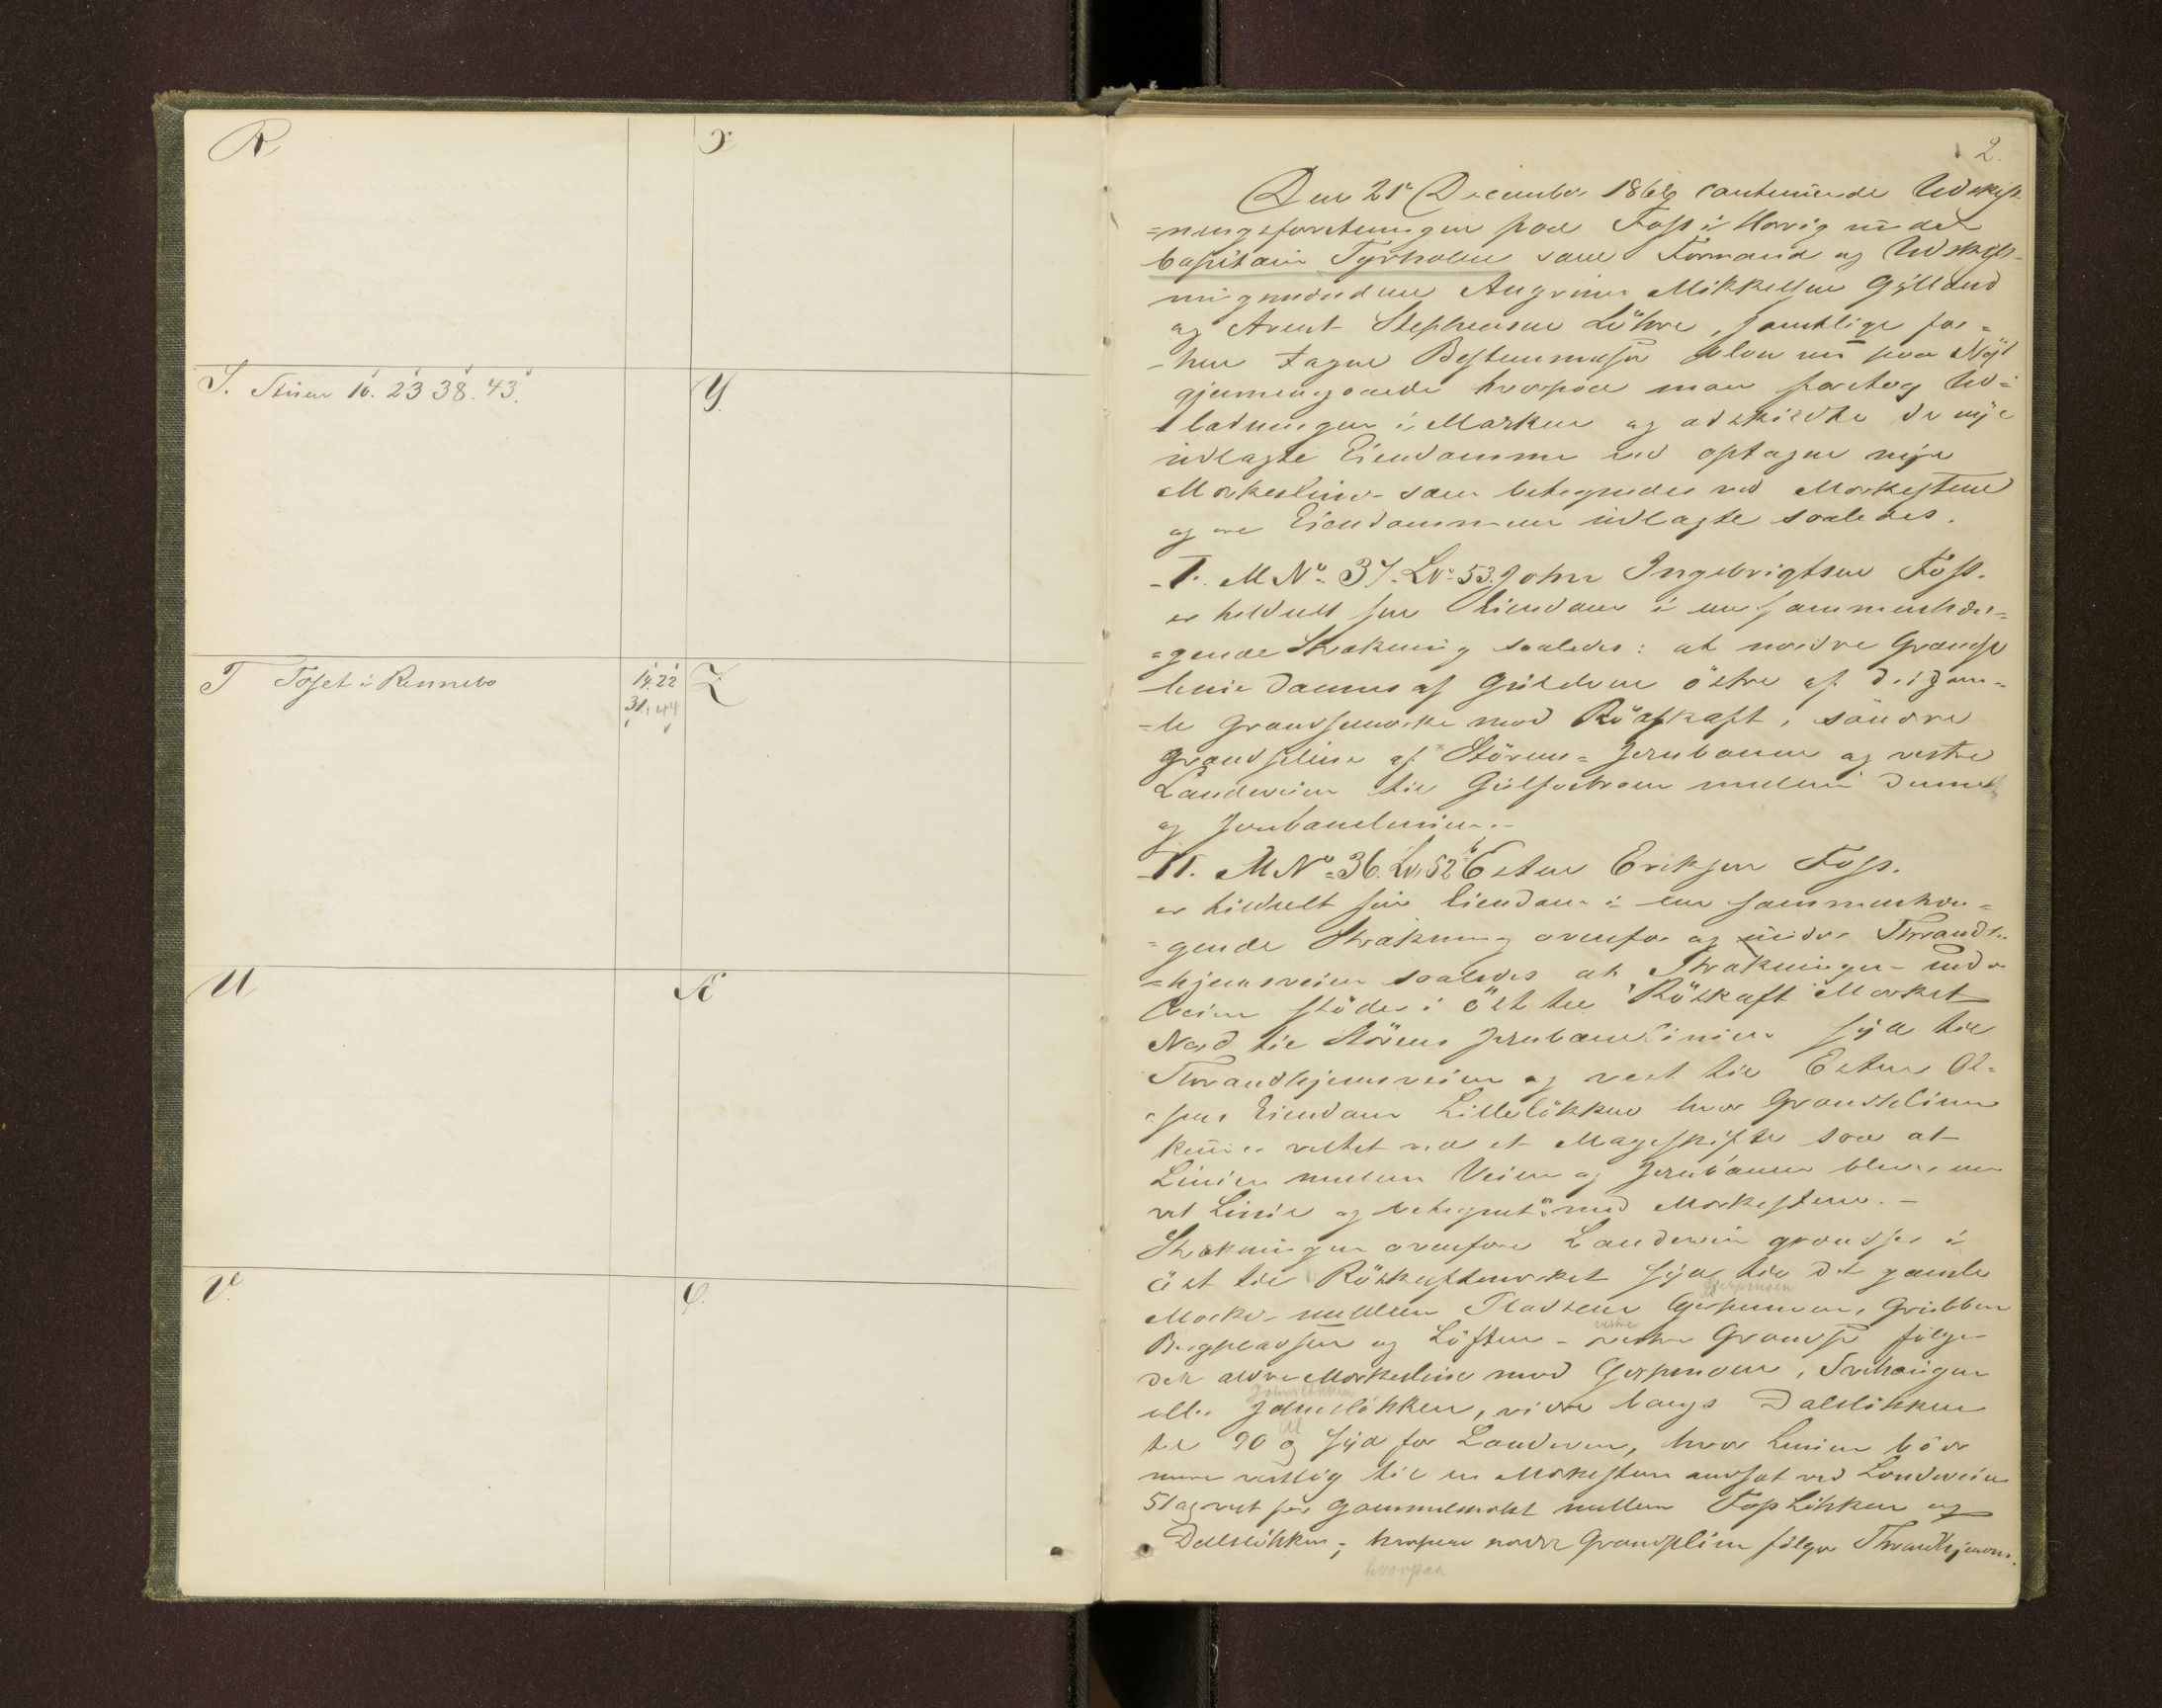 R
X
S. Stüren 16. 23 38. 43.
Y.
T Toset i Rennebo
14. 22
31. 44
Z
U
Æ
V.
Ø.
2.
Den 21de December 1866 contenuerede Udskift
=ningsforretningen paa Foss i Horrig under
Capitain Tyrholm som Formand og Udskift-
ningsmændene Angrim Mikkelsen Gylland
og Arent Stephensen Løhre, samtlige for=
=hen tagne Bestemmelser blev nu paa Nyt
gjennemgaaede hvorpaa man foretog Ud=
ladningen i Marken og adskildte de nye
udlagte Eiendomme ved optagne nye
Merkeslinier som betegnedes ved Merkestene
og ere Eiendommene udlagte saaledes.
I. M No. 37. LNo. 53. John Ingebrigtsen Foss.
er tildeelt sin Eiendom i en sammenhæn=
=gende Strækning saaledes: at nordre Grændse
linie dannes af Gülelven østre af det gam=
=le Grændsemerke mod Røskaft, søndre
Grændselinie af Störens Jernbanen og vestre
Landeveien til Gülfosbroen mellem denne
og Jernbanelinien.-
II. M No. 36. LN 52b Esten Eriksen Foss.
er tildeelt sin Eiendom i en sammenhæn=
=gende Strækning ovenfor og nedre Thrond=
=hjemsveien saaledes at Strækningen neden
Veien støder i Öst til Röskaft Merket
Nord til Störens Jernbanelinien Syd til
Throndhjemsveien og vest til Esten Ol=
=sens Eiendom Lilleløkken hvor Grændselinien
kun er rettet ved et Mageskifte saa at
Linien mellem Veien og Jernbanen bliver en
ret Linie og betegnet med Merkestene.-
Strækningen ovenfor Landeveien grændser i
öst til Röskaftmerket Syd til det gamle
Gjerpmoen
Merke mellem Pladsene Gjerpmoen, Grübben
vestre
Bergpladsen og Løften - vestre Grændse følger
det ældre Merkeslinie mod Gjerpmoen, Trehaügen
Johnsløkken
eller Johnsløkken, vidre langs Dalsløkken
Al
til 90 Al Syd for Landeveien, hvor Linien bör
mere vestlig til en Merkesten nedsat ved Landeveien
51 Al vest for Gammelmerket mellem Fossløkken og
Dalsløkken; hvorpaa nordre Grændselinie følger Throndhjems.
hvorpaa